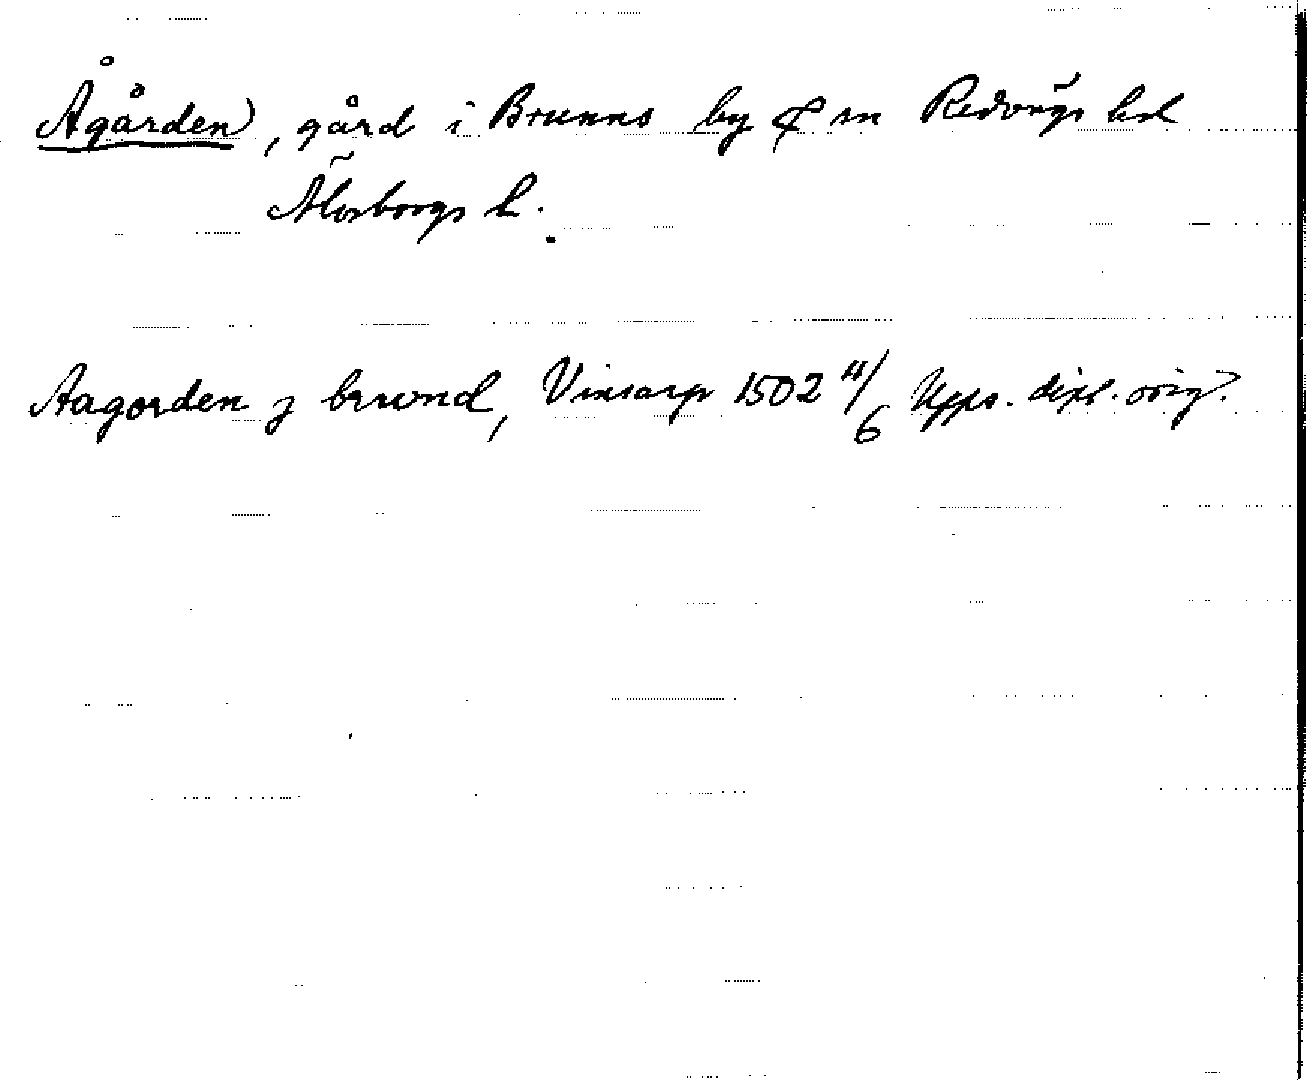 Ågården, gård i Brunns by & sn Redvägs hd
Älvsborgs l.
Aagorden j brwnd, Vinsarp 1502 11/6 Upps. dipl. orig.